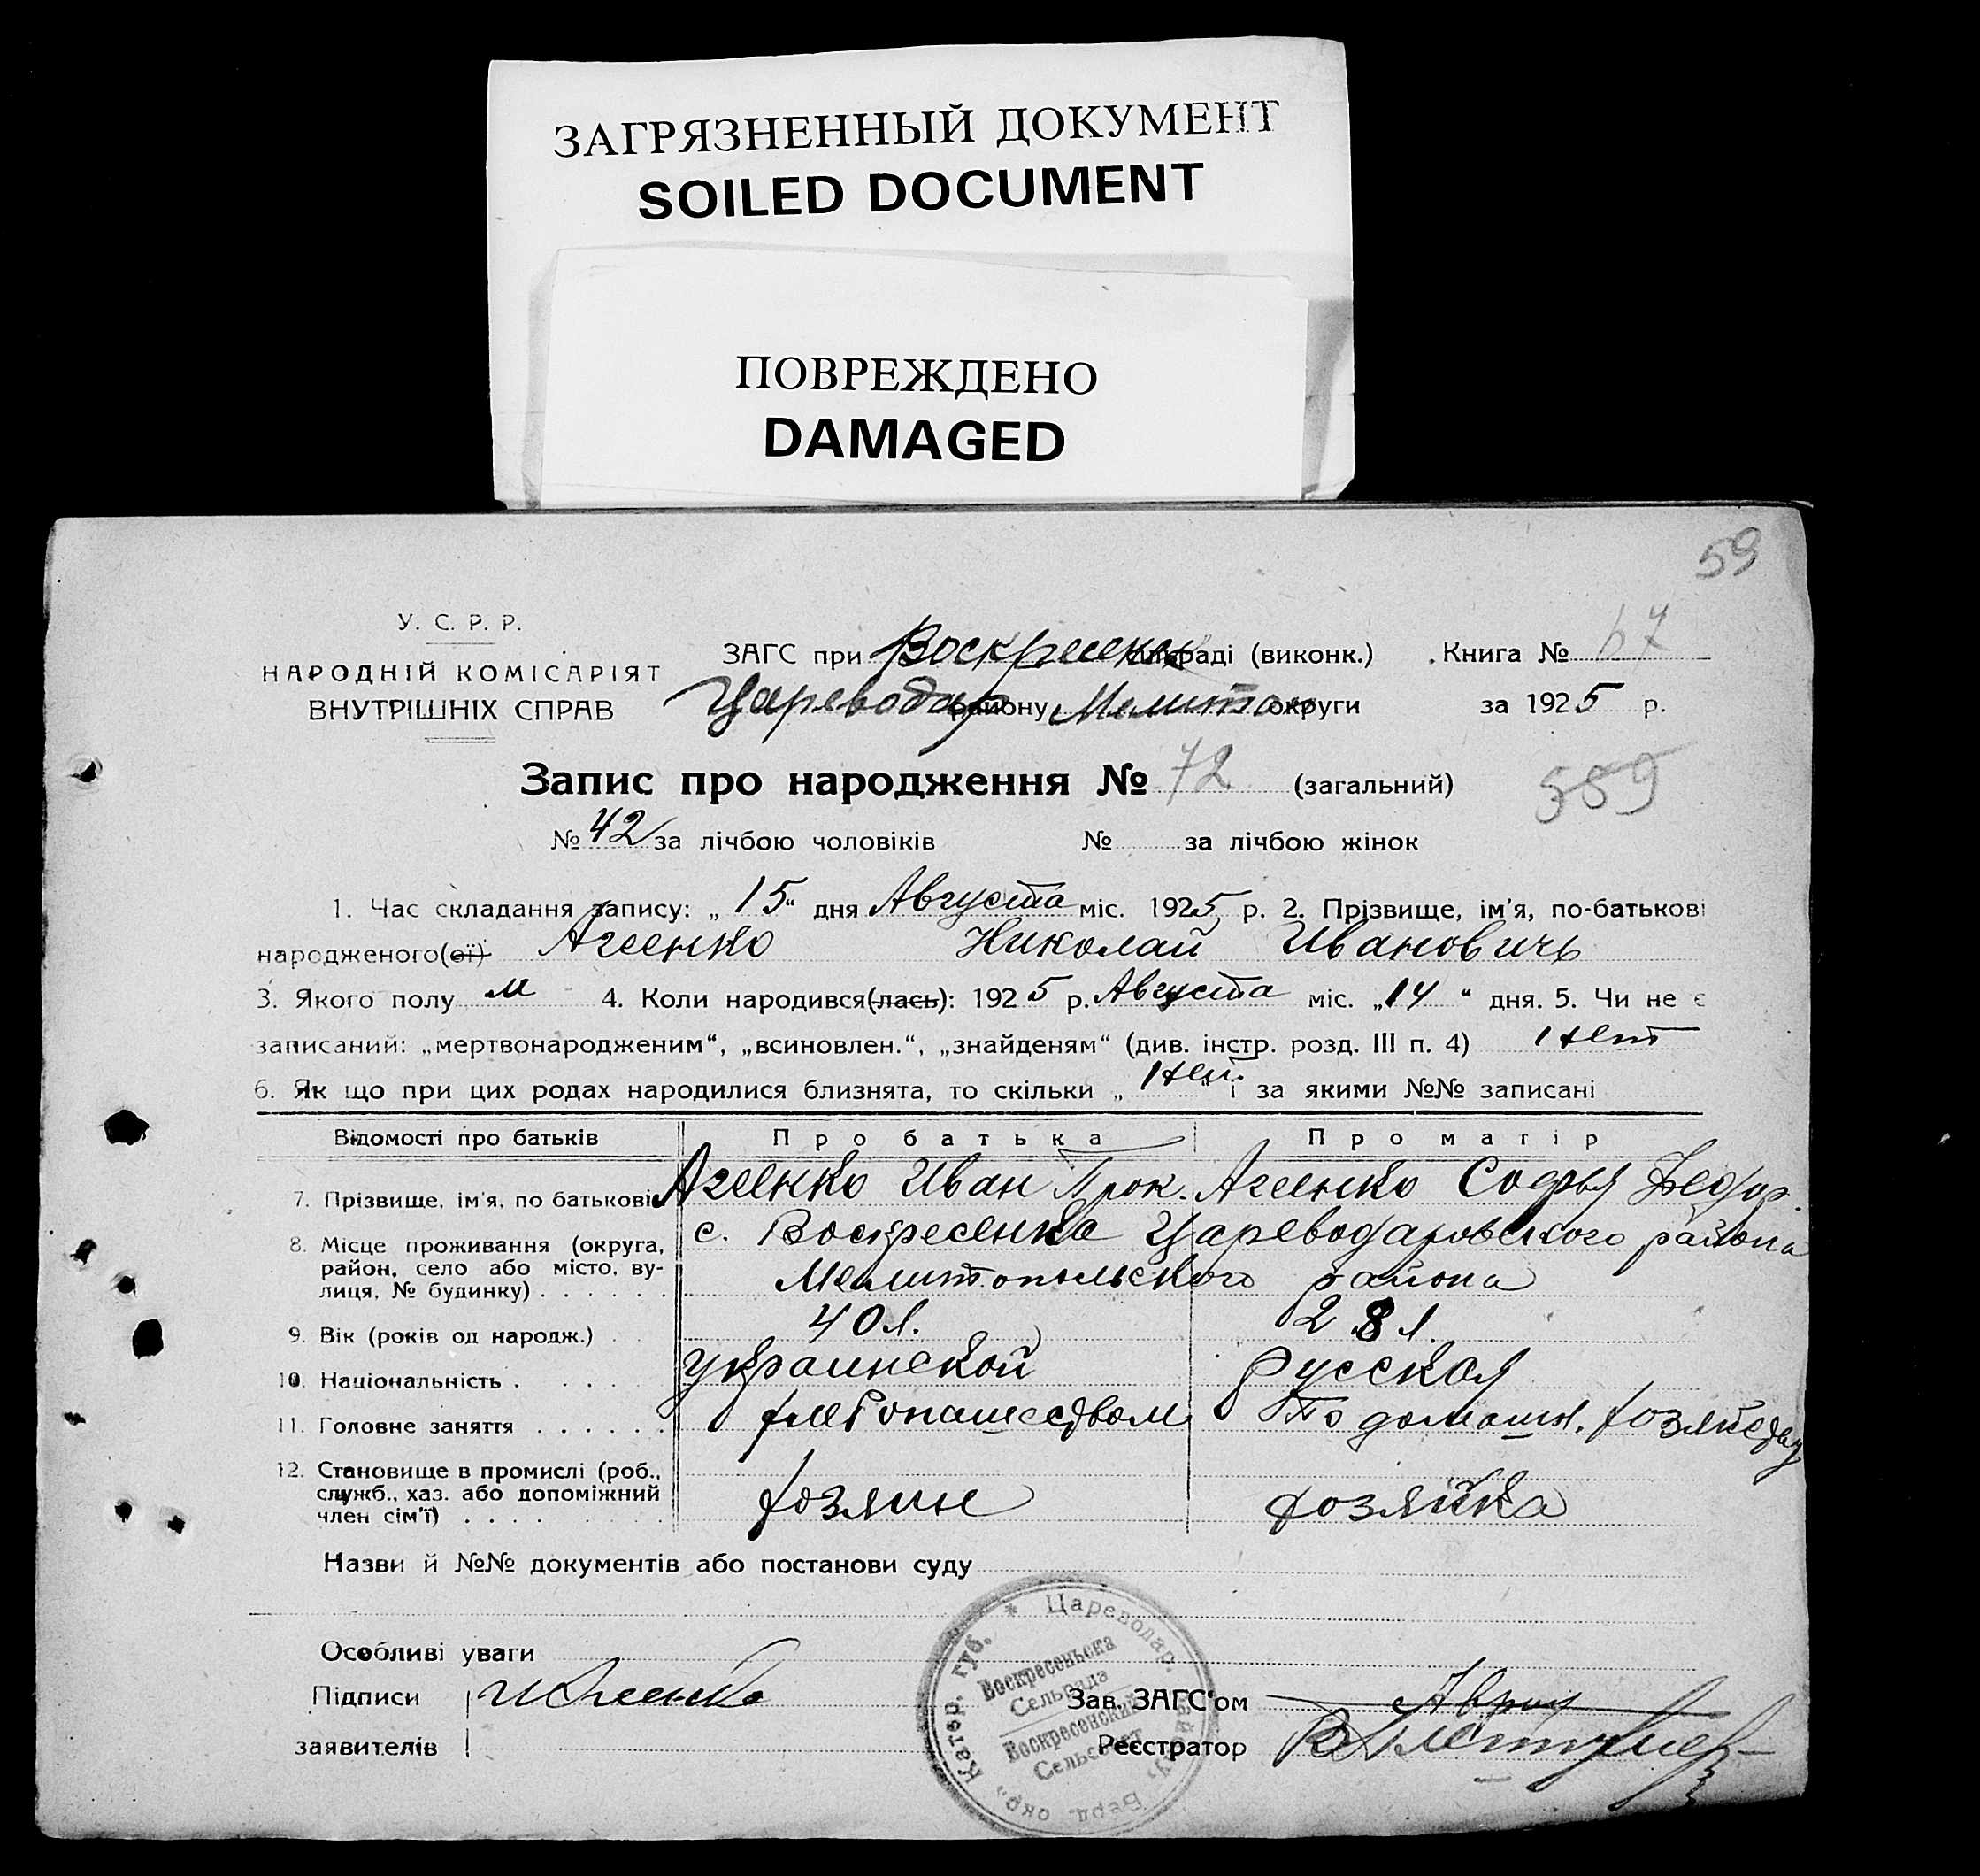 ЗАГРЯЗНЕННЫЙ ДОКУМЕНТ
SOILED DOCUMENT
ПОВРЕЖДЕНО
DAMAGED
59
У. С. Р. Р.
НАРОДНІЙ КОМІСАРІЯТ
ВНУТРІШНІХ СПРАВ
ЗАГС при Воскресенск раді (виконк.) Книга № 67
Цареводар району Мелитоп округи за 1925 р.
Запис про народження № 72 (загальний) 589
№ 42 за лічбою чоловіків № за лічбою жінок
1. Час складання запису: „15“ дня Августа міс. 1925 р. 2. Прізвище, ім'я, по-батькові
народженого(ої) Агеенко Николай Ивановичь
3. Якого полу м 4. Коли народився(лась): 1925 р. Августа міс. „14“ дня. 5. Чи не є
записаний: „мертвонародженим“, „всиновлен.“, „знайденям“ (див. інстр. розд. III п. 4) Нет
6. Як що при цих родах народилися близнята, то скільки „Нет“ і за якими №№ записані
Відомості про батьків Про батька Про матір
7. Прізвище, ім'я, по батькові Агеенко Иван Прок. Агеенко Софья Федор.
8. Місце проживання (округа, район, село або місто, вулиця, № будинку) с. Воскресенка Цареводаровского района
Мелитопольского района
9. Вік (років од народж.) 40 л. 28 л.
10. Національність украинской русская
11. Головне заняття хлебопашеством По домашн. хозяйству
12. Становище в промислі (роб., служб., хаз. або допоміжний член сім'ї) хозяин хозяйка
Назви й №№ документів або постанови суду
Особливі уваги
Підписи И Агеенко Зав. ЗАГС'ом
заявителів Реєстратор
* Цареводар. району, Берд. окр., Катер. губ.
Воскресенська
Сельрада
Воскресенский
Сельсовет